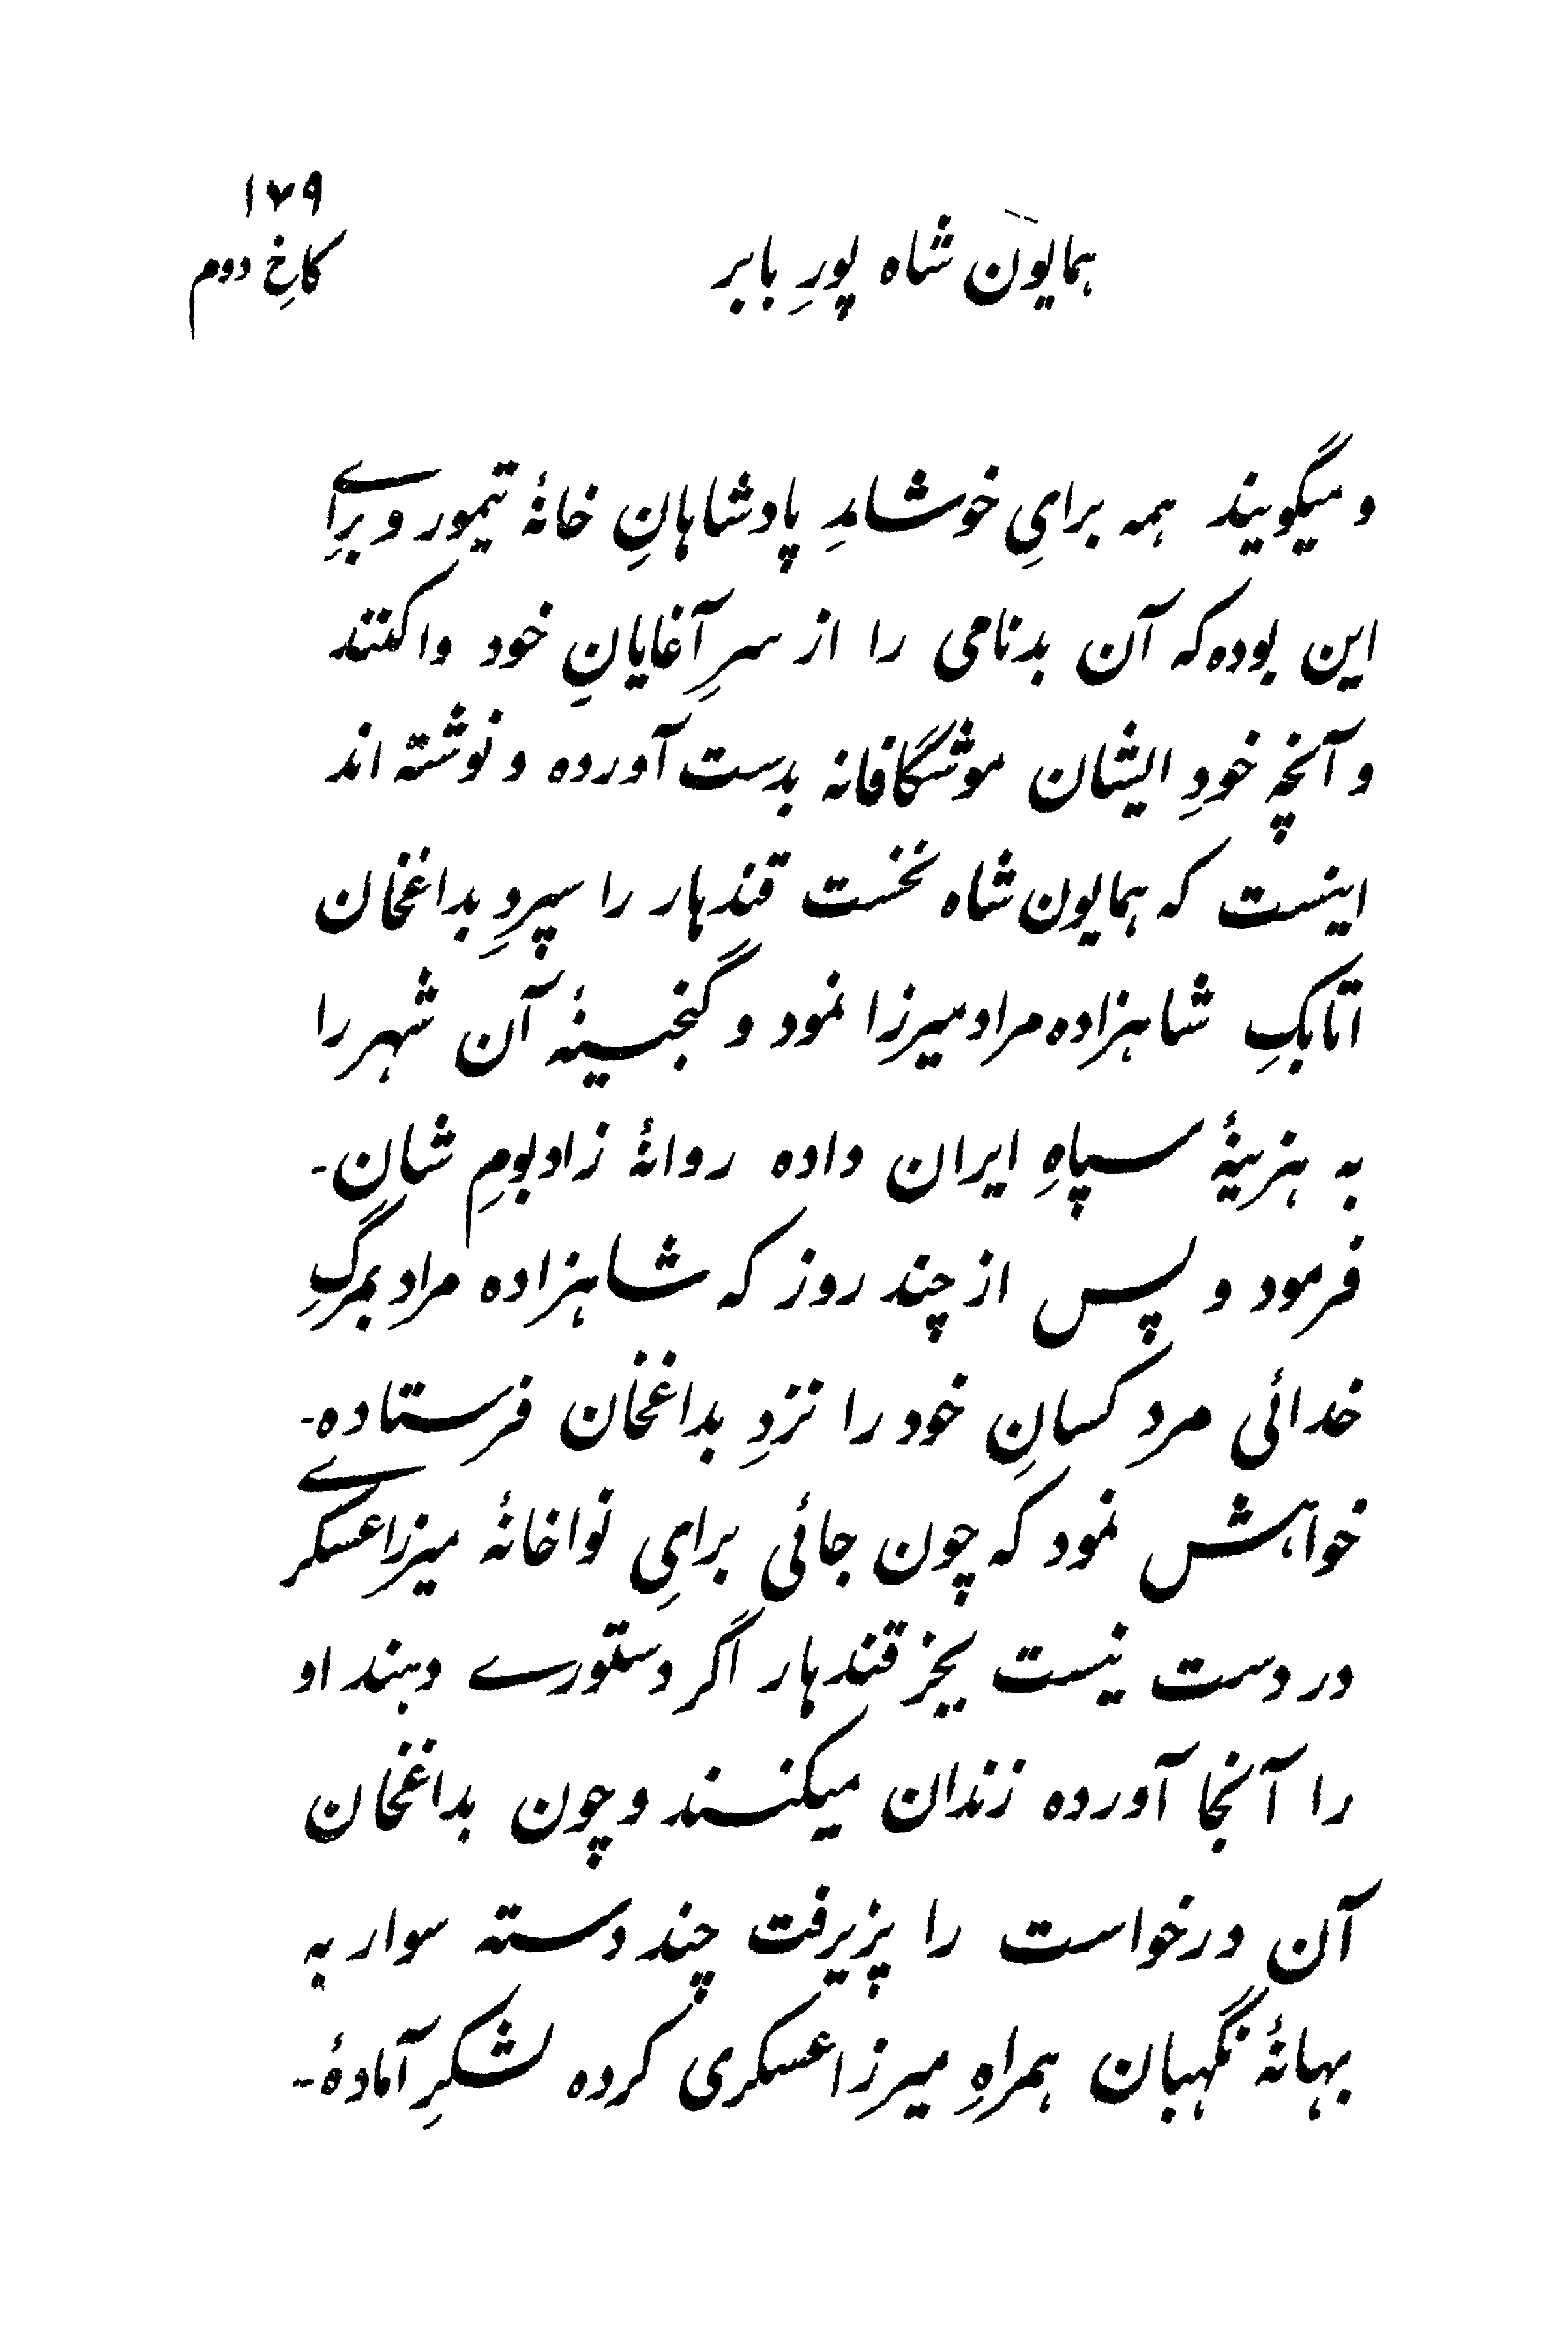 ۱۷۹
همایون شاه پورِ بابر
کاخِ دوم
و میگویند همه برایِ خوشامدِ پادشاهانِ خانهٔ تیمور و برای
این بوده که آن بدنامی را از سرِ آغایانِ خود واکنند
و آنچه خودِ ایشان موشگافانه بدست آورده و نوشته اند
اینست که همایون شاه نخست قندهار را سپردِ بداغخان
اتابکِ شاهزاده مراد میرزا نمود و گنجینهٔ آن شهر را
به هزینهٔ سپاهِ ایران داده روانهٔ زادبومِ شان-
فرمود و پس از چند روز که شاهزاده مراد بمرگِ
خدائی مرد کسانِ خود را نزدِ بداغخان فرستاده-
خواهش نمود که چون جائی برایِ نواخانهٔ میرزا عسکری
در دست نیست بجز قندهار اگر دستورے دهند او
را آنجا آورده زندان میکنند و چون بداغخان
آن درخواست را پزیرفت چند دسته سوار به
بهانهٔ نگهبان همراهِ میرزا عسکری کرده لشکرِ آمادهٔ-